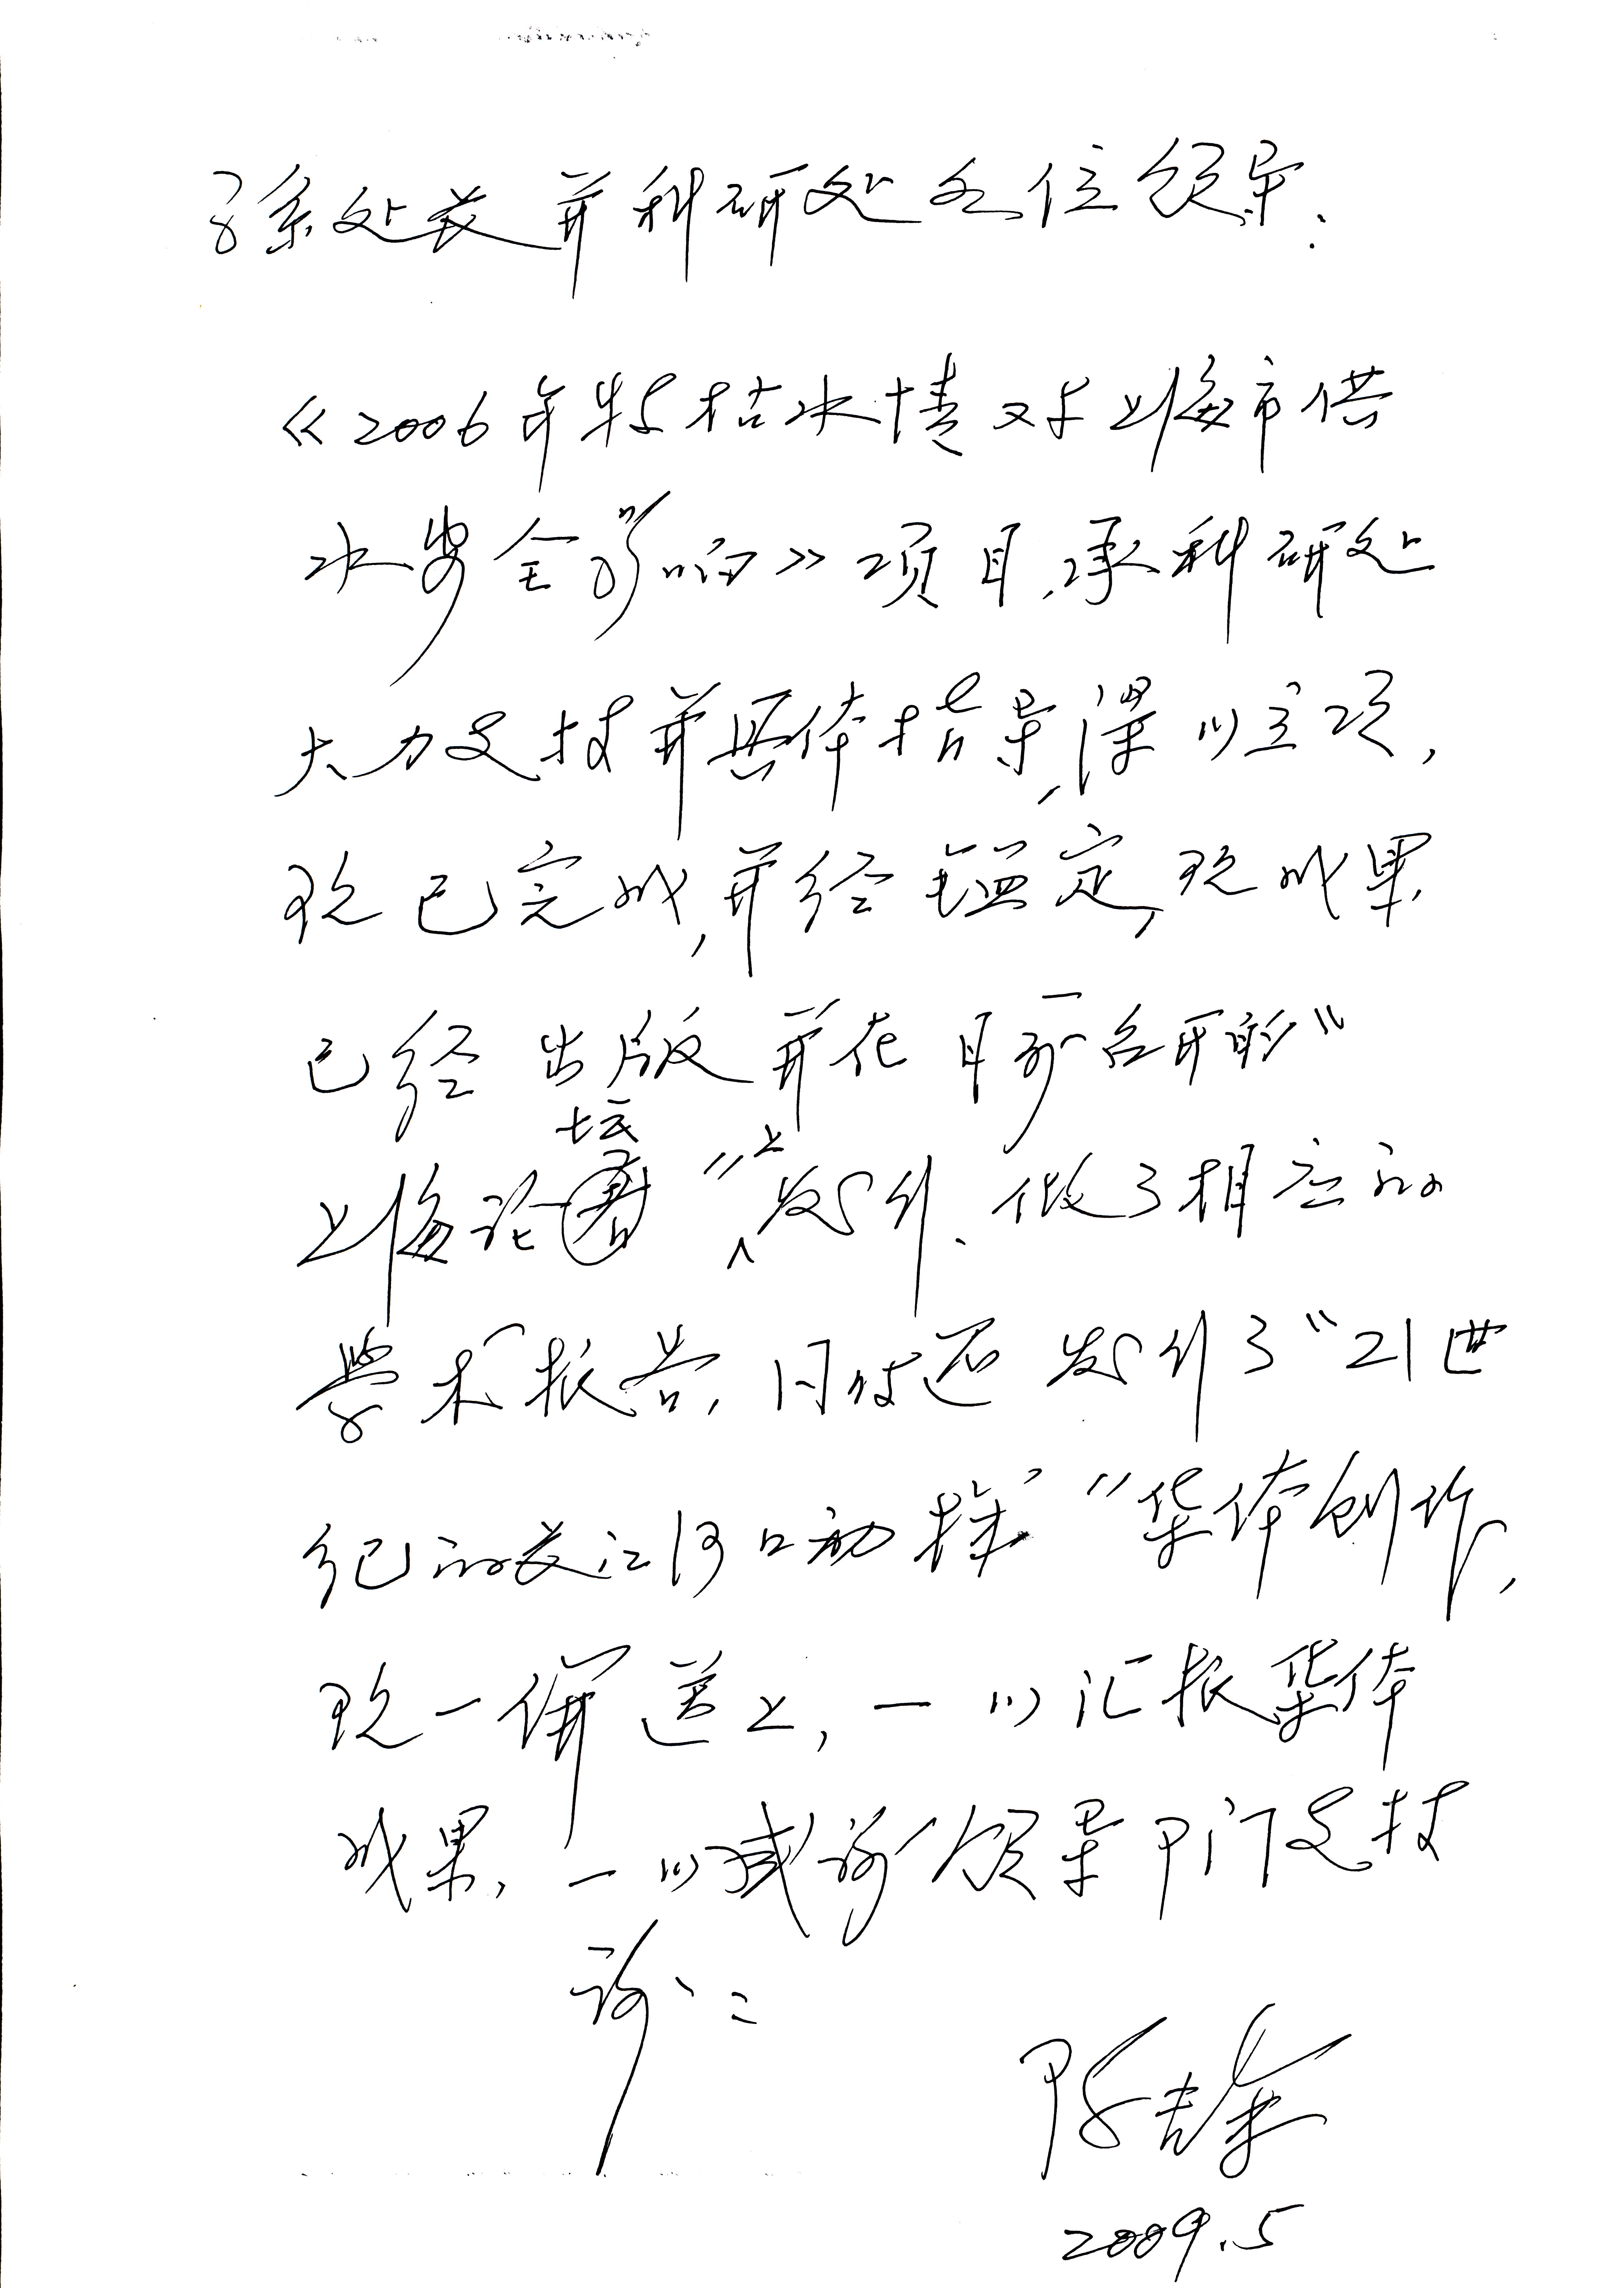 孙处长并科研处各位领导:
《2006年特枯水情对上海市供
水安全影响》项目,承科研处
大力支持并具体指导,得以立项,
现已完成,并经鉴定,现成果
已经出版并在
坛 上
上海论 "发引、做了相应的
学术报告,同时还发引了"21世
纪的长江河口初探""集体创作,
现一併送上,一以汇报集体
成果,一以感谢领导部门支持
谢谢
陈吉余
2009.5